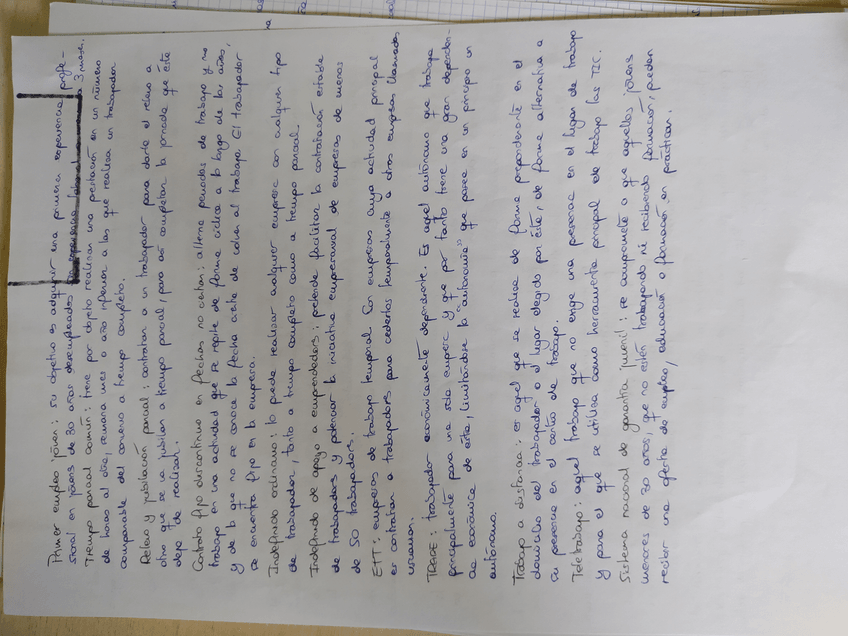 Primer empleo joven: su objetivo es adquirir una primera experiencia profe-
sional en jóvenes de 30 años desempleados 3 mese.
Tiempo parcial común: tiene por objeto realizar una prestación en un número
de horas al día, semana mes o año inferior a las que realiza un trabajador
comparable del convenio a tiempo completo.
Relevo y jubilación parcial: contratan a un trabajador para darle el relevo a
otro que se va jubilar a tiempo parcial, para así completar la jornada que éste
deja de realizar.
Contrato fijo discontinuo en fechas no ciertas: alterna periodos de trabajo y no
trabajo en una actividad que se repite de forma cíclica a lo largo de los años,
y de la que no se conoce la fecha cierta de volver al trabajo. El trabajador
se encuentra fijo en la empresa.
Indefinido ordinario: lo puede realizar cualquier empresa con cualquier tipo
de trabajador, tanto a tiempo completo como a tiempo parcial.
Indefinido de apoyo a emprendedores: pretende facilitar la contratación estable
de trabajadores y potenciar la iniciativa empresarial de empresas de menos
de 50 trabajadores.
ETT: empresas de trabajo temporal. Son empresas cuya actividad principal
es contratar a trabajadores para cederlos temporalmente a otras empresas llamadas
usuarias.
TRADE: trabajador económicamente dependiente. Es aquel autónomo que trabaja
principalmente para una sola empresa y que por tanto tiene una gran dependen-
cia económica de ésta, limitándose la "autonomía" que posea en un principio un
autónomo.
Trabajo a distancia: es aquel que se realiza de forma preponderante en el
domicilio del trabajador o el lugar elegido por éste, de forma alternativa a
su presencia en el centro de trabajo.
Teletrabajo: aquel trabajo que no exige una presencia en el lugar de trabajo
y para el que se utiliza como herramienta principal de trabajo las TIC.
Sistema nacional de garantía juvenil: se compromete a que aquellos jóvenes
menores de 30 años, que no estén trabajando ni recibiendo formación, puedan
recibir una oferta de empleo, educación o formación en prácticas.